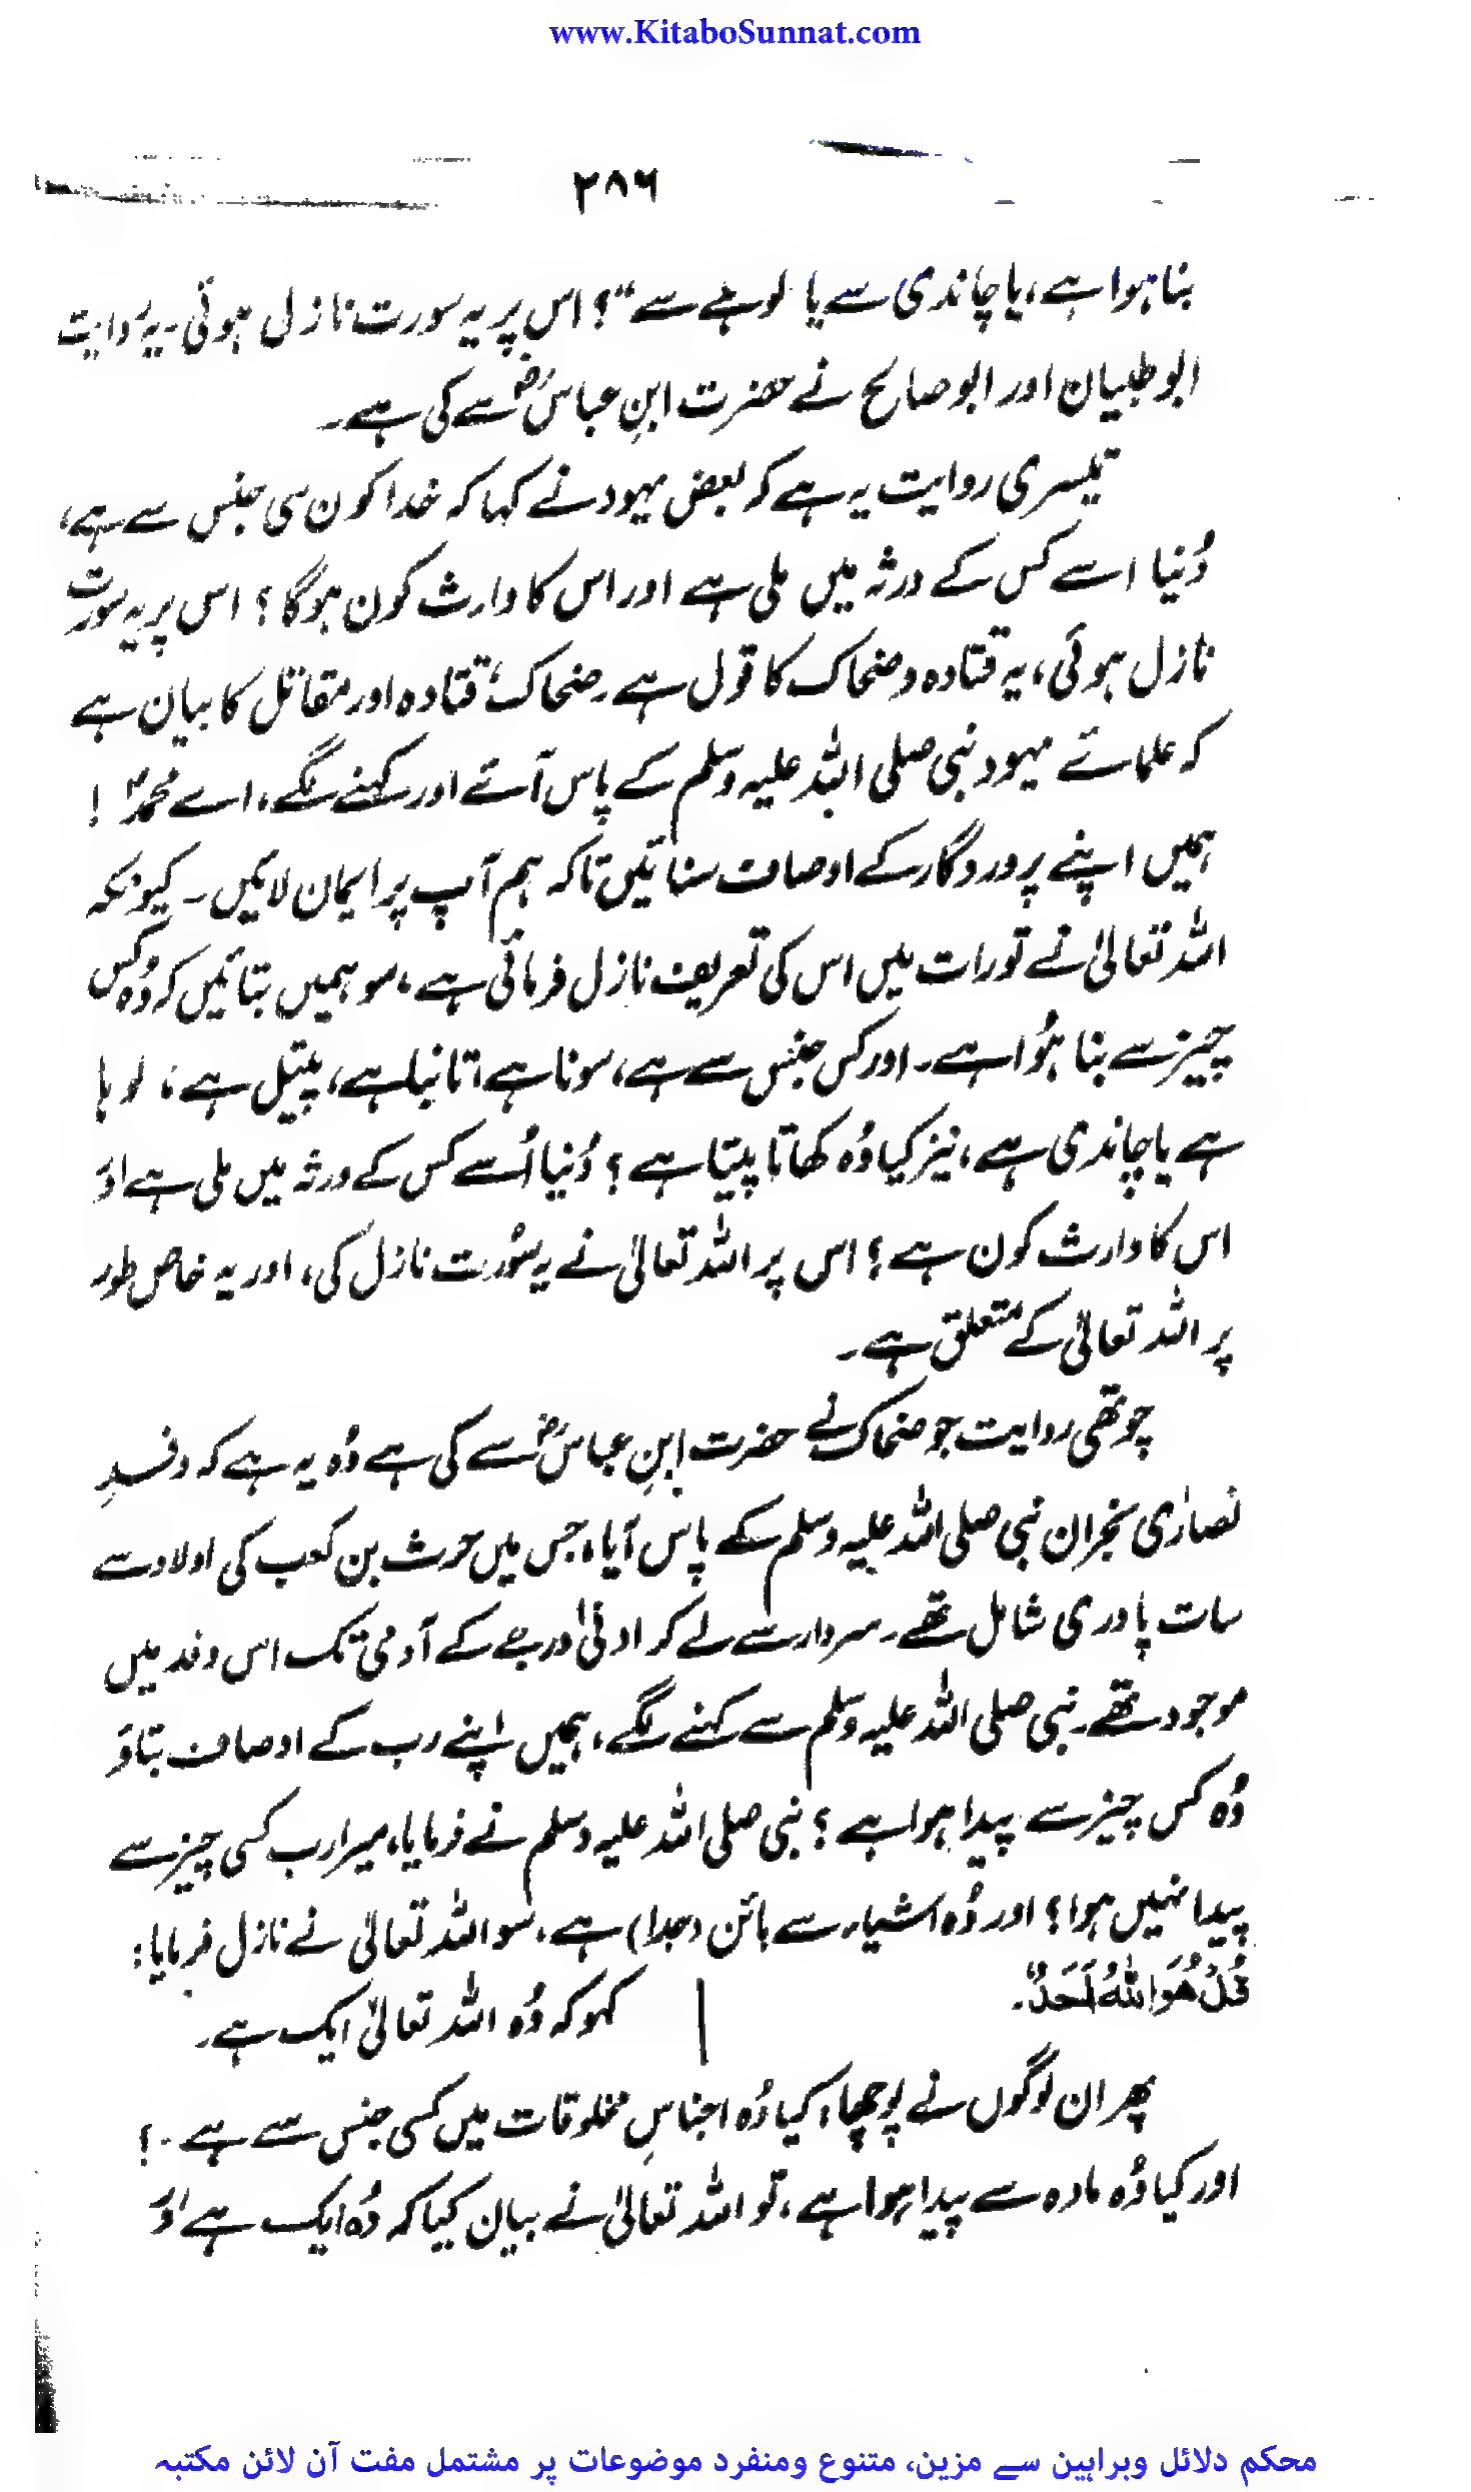 www.KitaboSunnat.com
۲۸۶
بنا ہوا ہے، یا چاندی سے یا لوہے سے“؟ اس پر یہ سورت نازل ہوئی۔ یہ رُوایت
ابو ظبیان اور ابو صالح نے حضرت ابنِ عباسؓ سے کی ہے۔
تیسری روایت یہ ہے کہ بعض یہود نے کہا کہ خدا کون سی جنس سے ہے،
دُنیا اسے کس کے ورثہ میں ملی ہے اور اس کا وارث کون ہوگا؟ اس پر یہ سورت
نازل ہوئی، یہ قتادہ و ضحاک کا قول ہے۔ ضحاک، قتادہ اور مقاتل کا بیان ہے
کہ علمائے یہود نبی صلی اللہ علیہ وسلم کے پاس آئے اور کہنے لگے، اے محمدؐ !
ہمیں اپنے پروردگار کے اوصاف سنائیں تاکہ ہم آپ پر ایمان لائیں۔ کیونکہ
اللہ تعالیٰ نے تورات میں اس کی تعریف نازل فرمائی ہے، سو ہمیں بتائیں کہ وُہ کس
چیز سے بنا ہُوا ہے۔ اور کس جنس سے ہے، سونا ہے، تانبا ہے، پیتل ہے، لوہا
ہے یا چاندی ہے، نیز کیا وُہ کھاتا پیتا ہے؟ دُنیا اُسے کس کے ورثہ میں ملی ہے اور
اس کا وارث کون ہے؟ اس پر اللہ تعالیٰ نے یہ سُورت نازل کی، اور یہ خاص طور
پر اللہ تعالیٰ کے متعلق ہے۔
چوتھی روایت جو ضحاک نے حضرت ابنِ عباسؓ سے کی ہے وُہ یہ ہے کہ وفدِ
نصارٰی نجران نبی صلی اللہ علیہ وسلم کے پاس آیا، جس میں حرث بن کعب کی اولاد سے
سات پادری شامل تھے۔ سردار سے لے کر ادنیٰ درجے کے آدمی تک اس وفد میں
موجود تھے۔ نبی صلی اللہ علیہ وسلم سے کہنے لگے، ہمیں اپنے رب کے اوصاف بتاؤ
وُہ کس چیز سے پیدا ہوا ہے؟ نبی صلی اللہ علیہ وسلم نے فرمایا، میرا رب کسی چیز سے
پیدا نہیں ہوا؟ اور وُہ اشیاء سے بائن (جدا) ہے، سو اللہ تعالیٰ نے نازل فرمایا:
قُلْ هُوَ اللهُ اَحَدٌ۔ | کہو کہ وُہ اللہ تعالیٰ ایک ہے۔
پھر ان لوگوں نے پوچھا، کیا وُہ اجناسِ مخلوقات میں کسی جنس سے ہے۔؟
اور کیا وُہ مادہ سے پیدا ہوا ہے، تو اللہ تعالیٰ نے بیان کیا کہ وُہ ایک ہے اور
محکم دلائل وبراہین سے مزین، متنوع ومنفرد موضوعات پر مشتمل مفت آن لائن مکتبہ